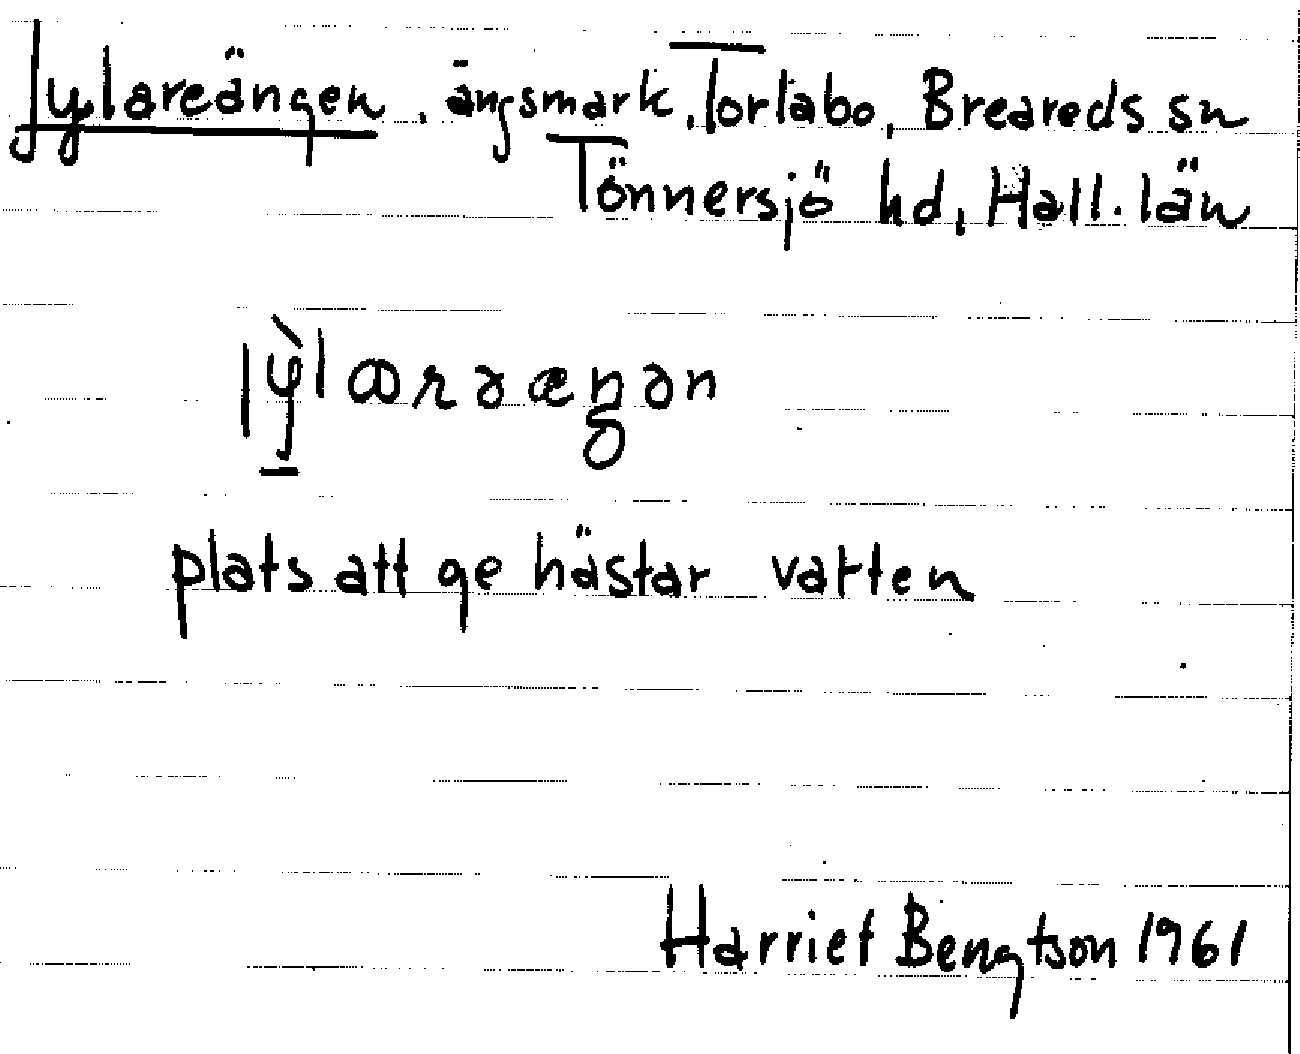 Jylareängen, ängsmark, Torlabo, Breareds sn
Tönnersjö hd, Hall. län
plats att ge hästar vatten
Harriet Bengtson 1961